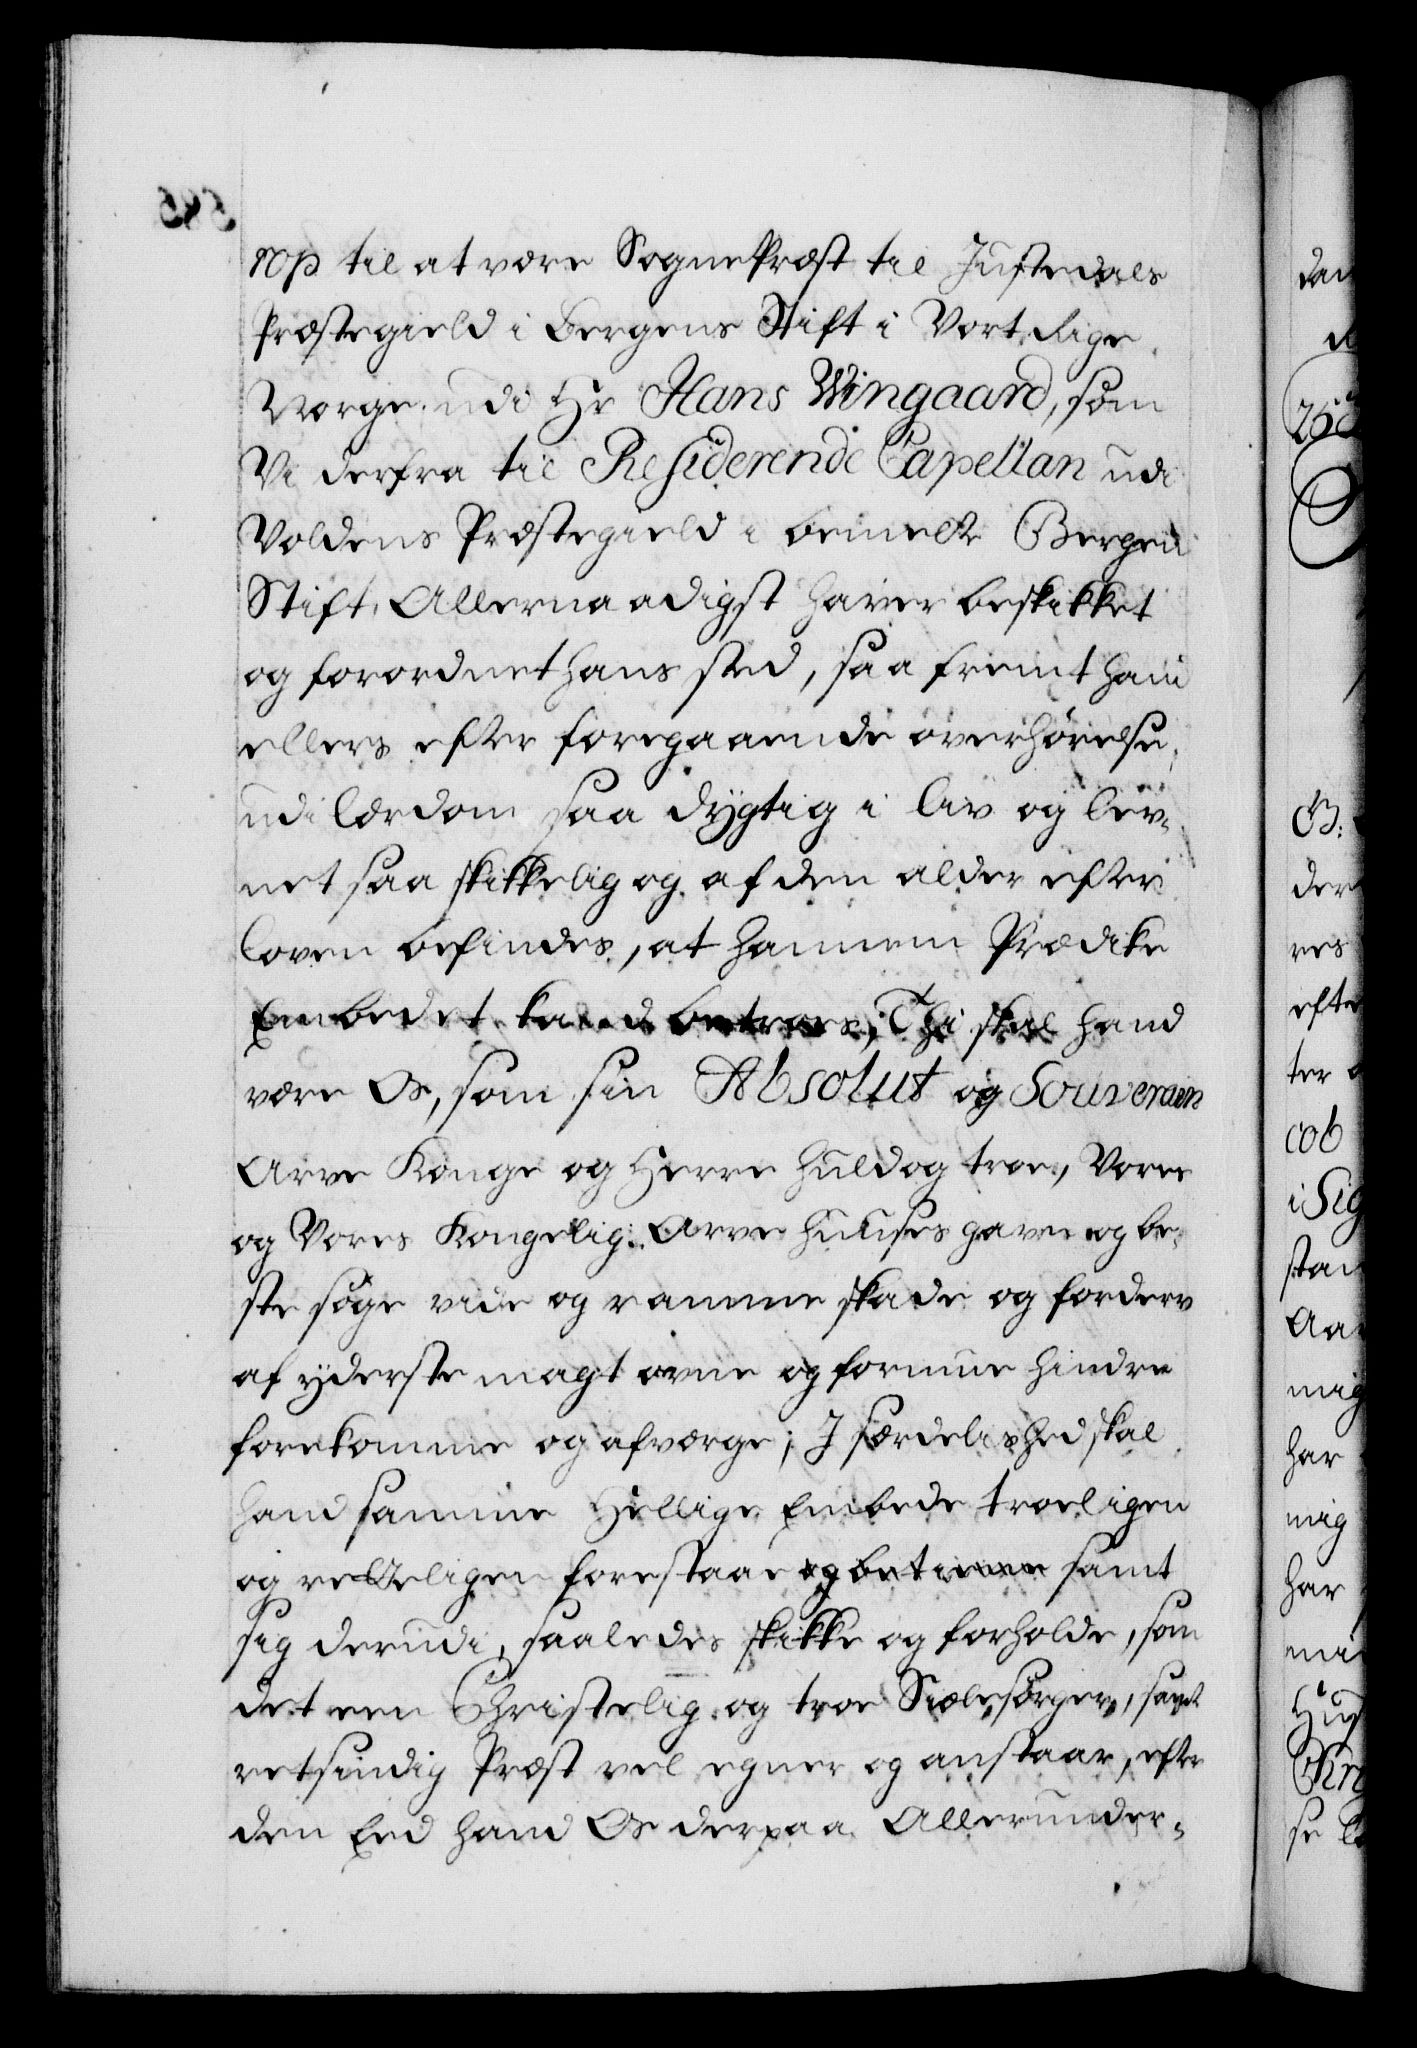 rop til at være SognePræst til Justedals
Præstegield i Bergens Stift i Vort Rige
Norge udi Hr Hans Wingaard, som
Vi derfra til Residerende Capellan udi
Voldens Præstegield i bemelte Bergens
Stift, Allernaadigst haver beskikket
og forordnet hans sted, saa fremt hand
ellers efter foregaaende overhørelse,
udi lærdom saa dygtig i liv og lev-
net saa skikkelig og af den alder efter
loven befindes, at hannem Prædike
Embedet kand betroes; Thi skal hand
være Os, som sin Absolut og Souverain
Arve Konge og Herre huld og troe, Vores
og Vores Kongelig: Arve Huuses gavn og be-
ste søge vide og ramme skade og forderv
af yderste magt ævne og formue hindre
forekomme og afværge; J særdelished skal
hand samme Hellige Embede troeligen
og retteligen forestaae og betiene samt
sig derudi, saaledes skikke og forholde, som
det een Christelig og troe Siælesørger, samt
retsindig Præst vel egner og anstaar, efter
den Eed hand Os derpaa Allerunder-